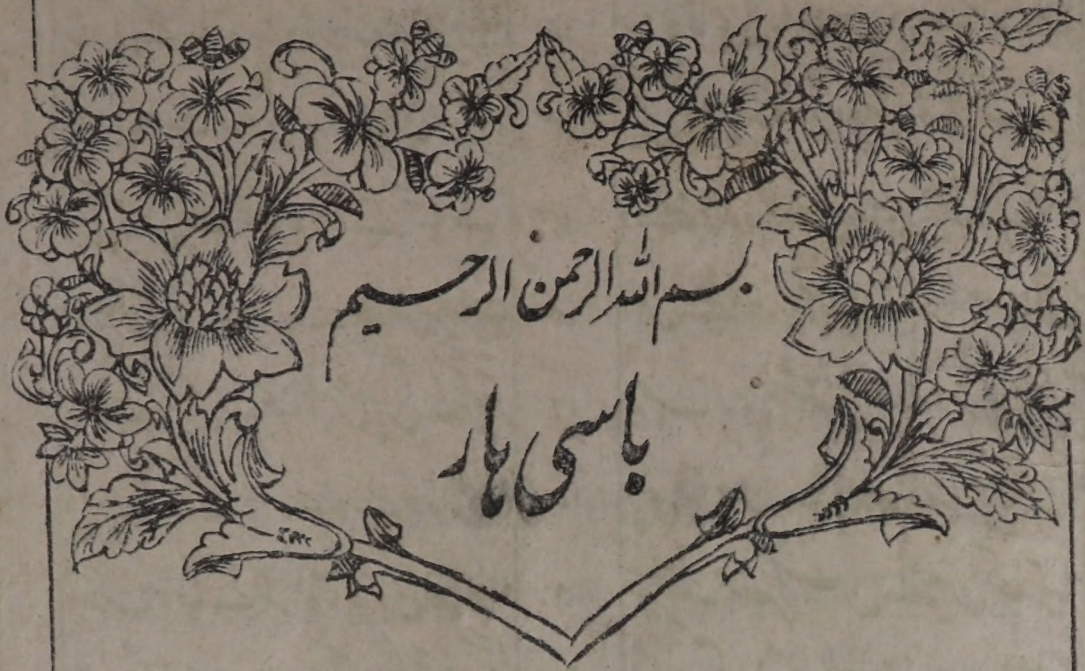 بسم الله الرحمن الرحیم
باسی ہار